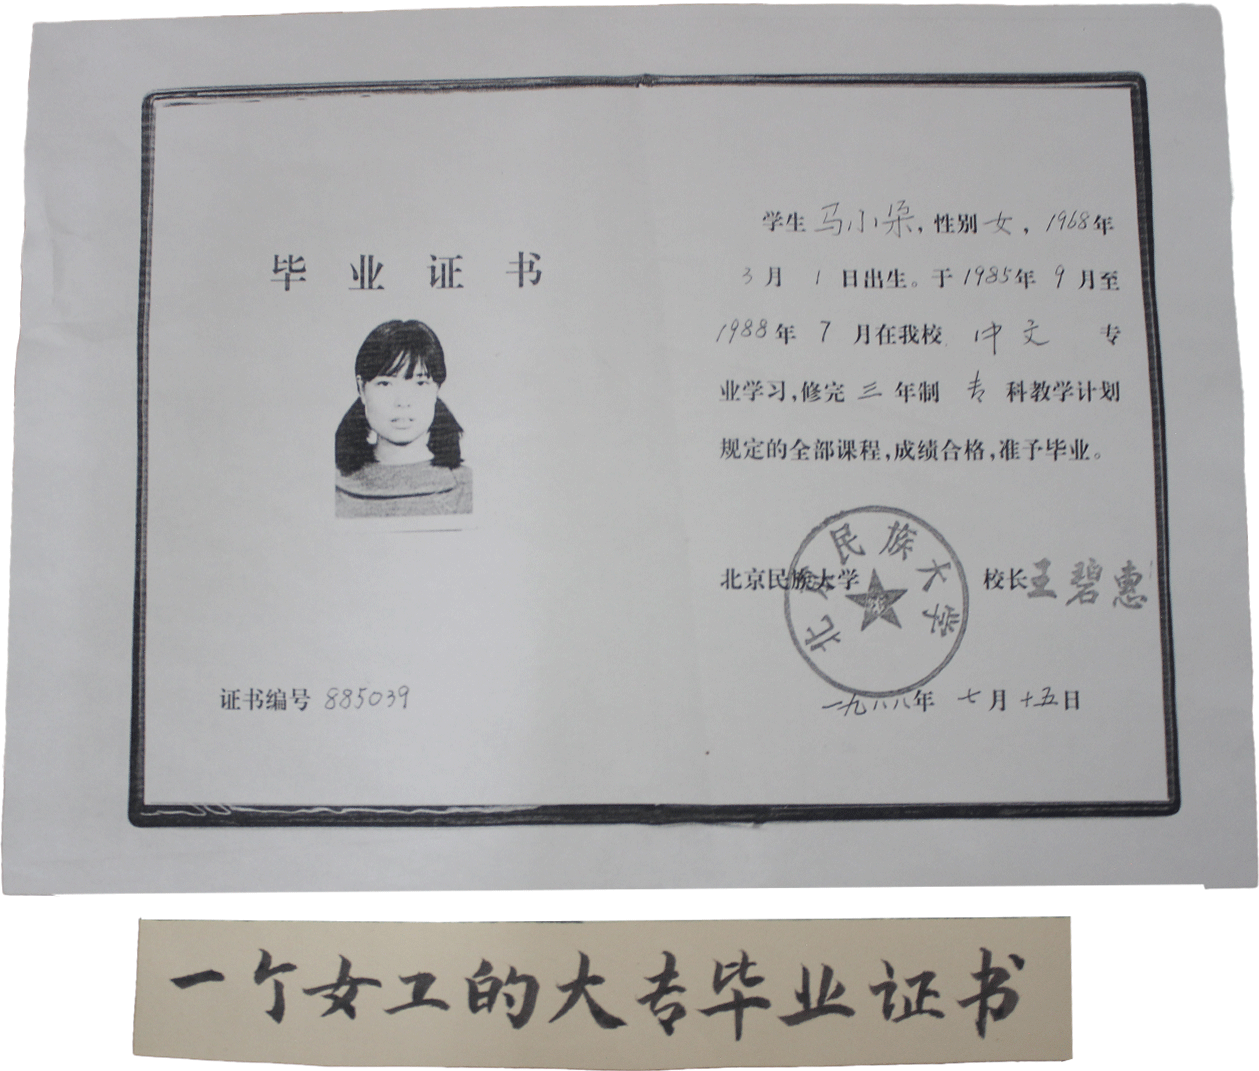 毕业证书
证书编号 885039
学生马小朵,性别女,1968年
3月 1 日出生。于1985年 9 月至
1988年 7 月在我校 中文 专
业学习,修完 三 年制 专 科教学计划
规定的全部课程,成绩合格,准予毕业。
北京民族大学
校长王碧惠
北京民族大学
一九八八年 七月十五日
一个女工的大专毕业证书